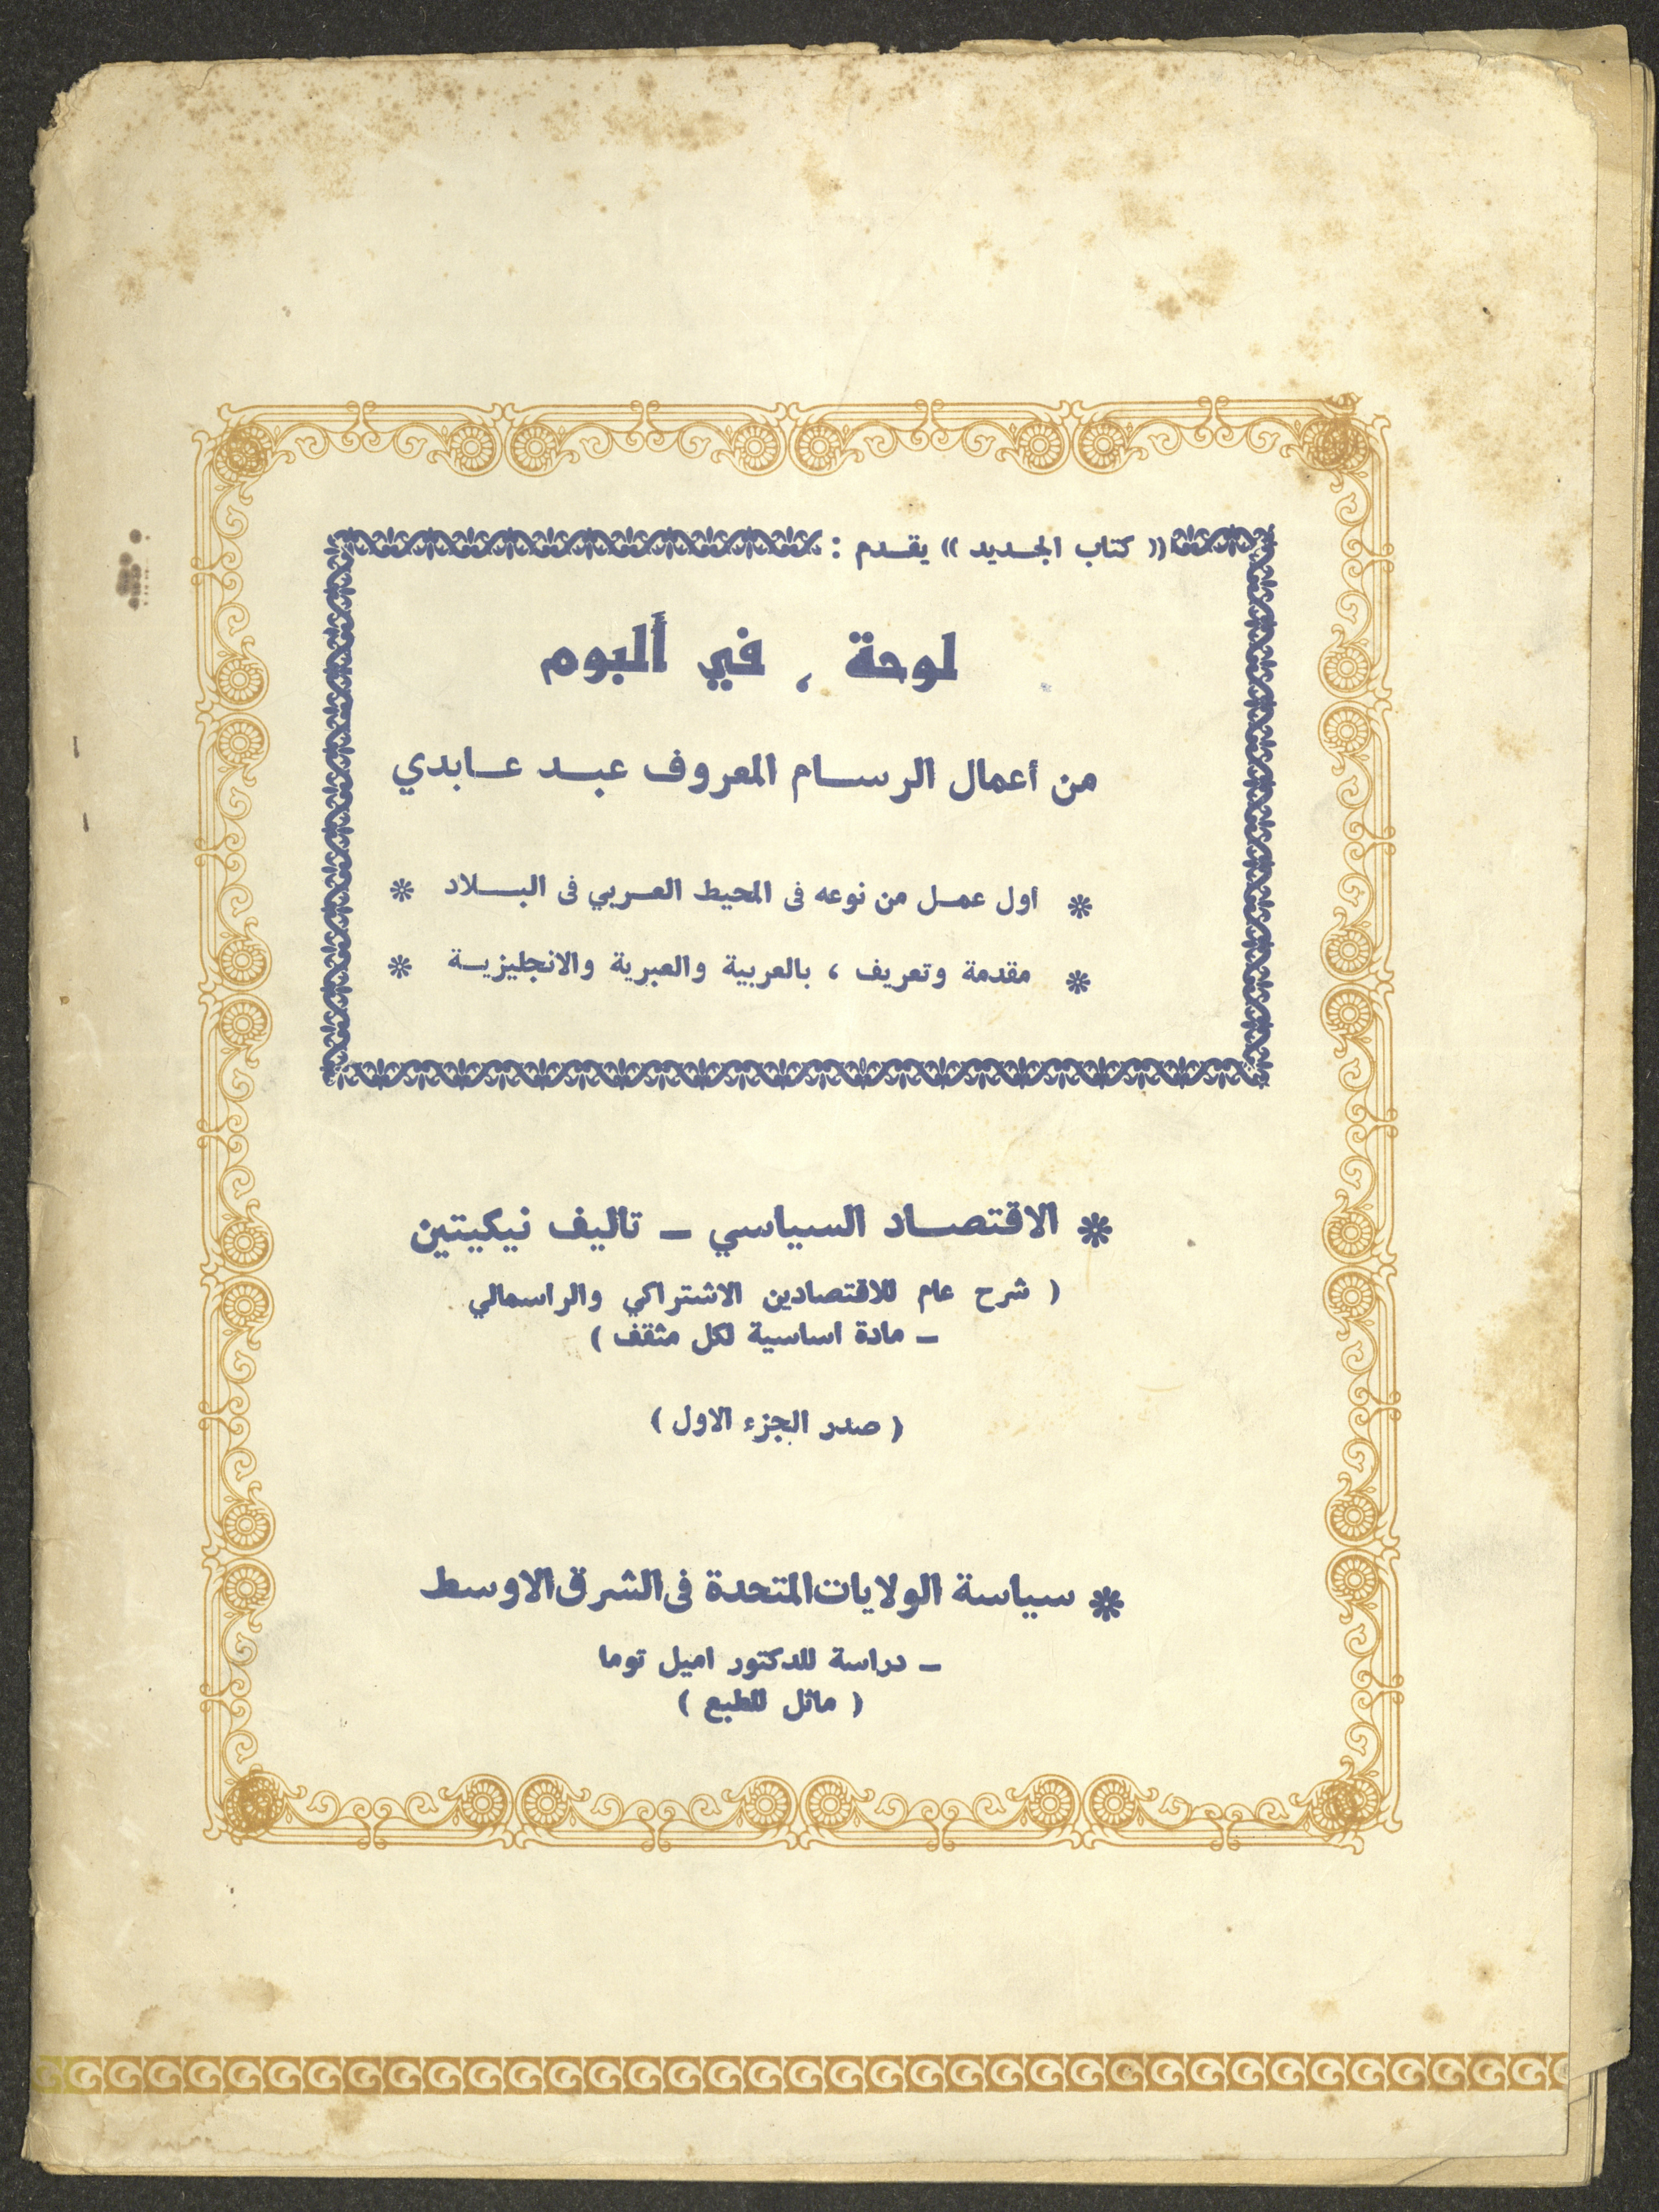 (( كتاب الجديد )) يقدم :
لوحة ، في ألبوم
من أعمال الرسام المعروف عبد عابدي
* اول عمل من نوعه في المحيط العربي في البلاد *
* مقدمة وتعريف ، بالعربية والعبرية والانجليزية *
* الاقتصاد السياسي - تاليف نيكيتين
( شرح عام للاقتصادين الاشتراكي والراسمالي
- مادة اساسية لكل مثقف )
( صدر الجزء الاول )
* سياسة الولايات المتحدة في الشرق الاوسط
- دراسة للدكتور اميل توما
( ماثل للطبع )